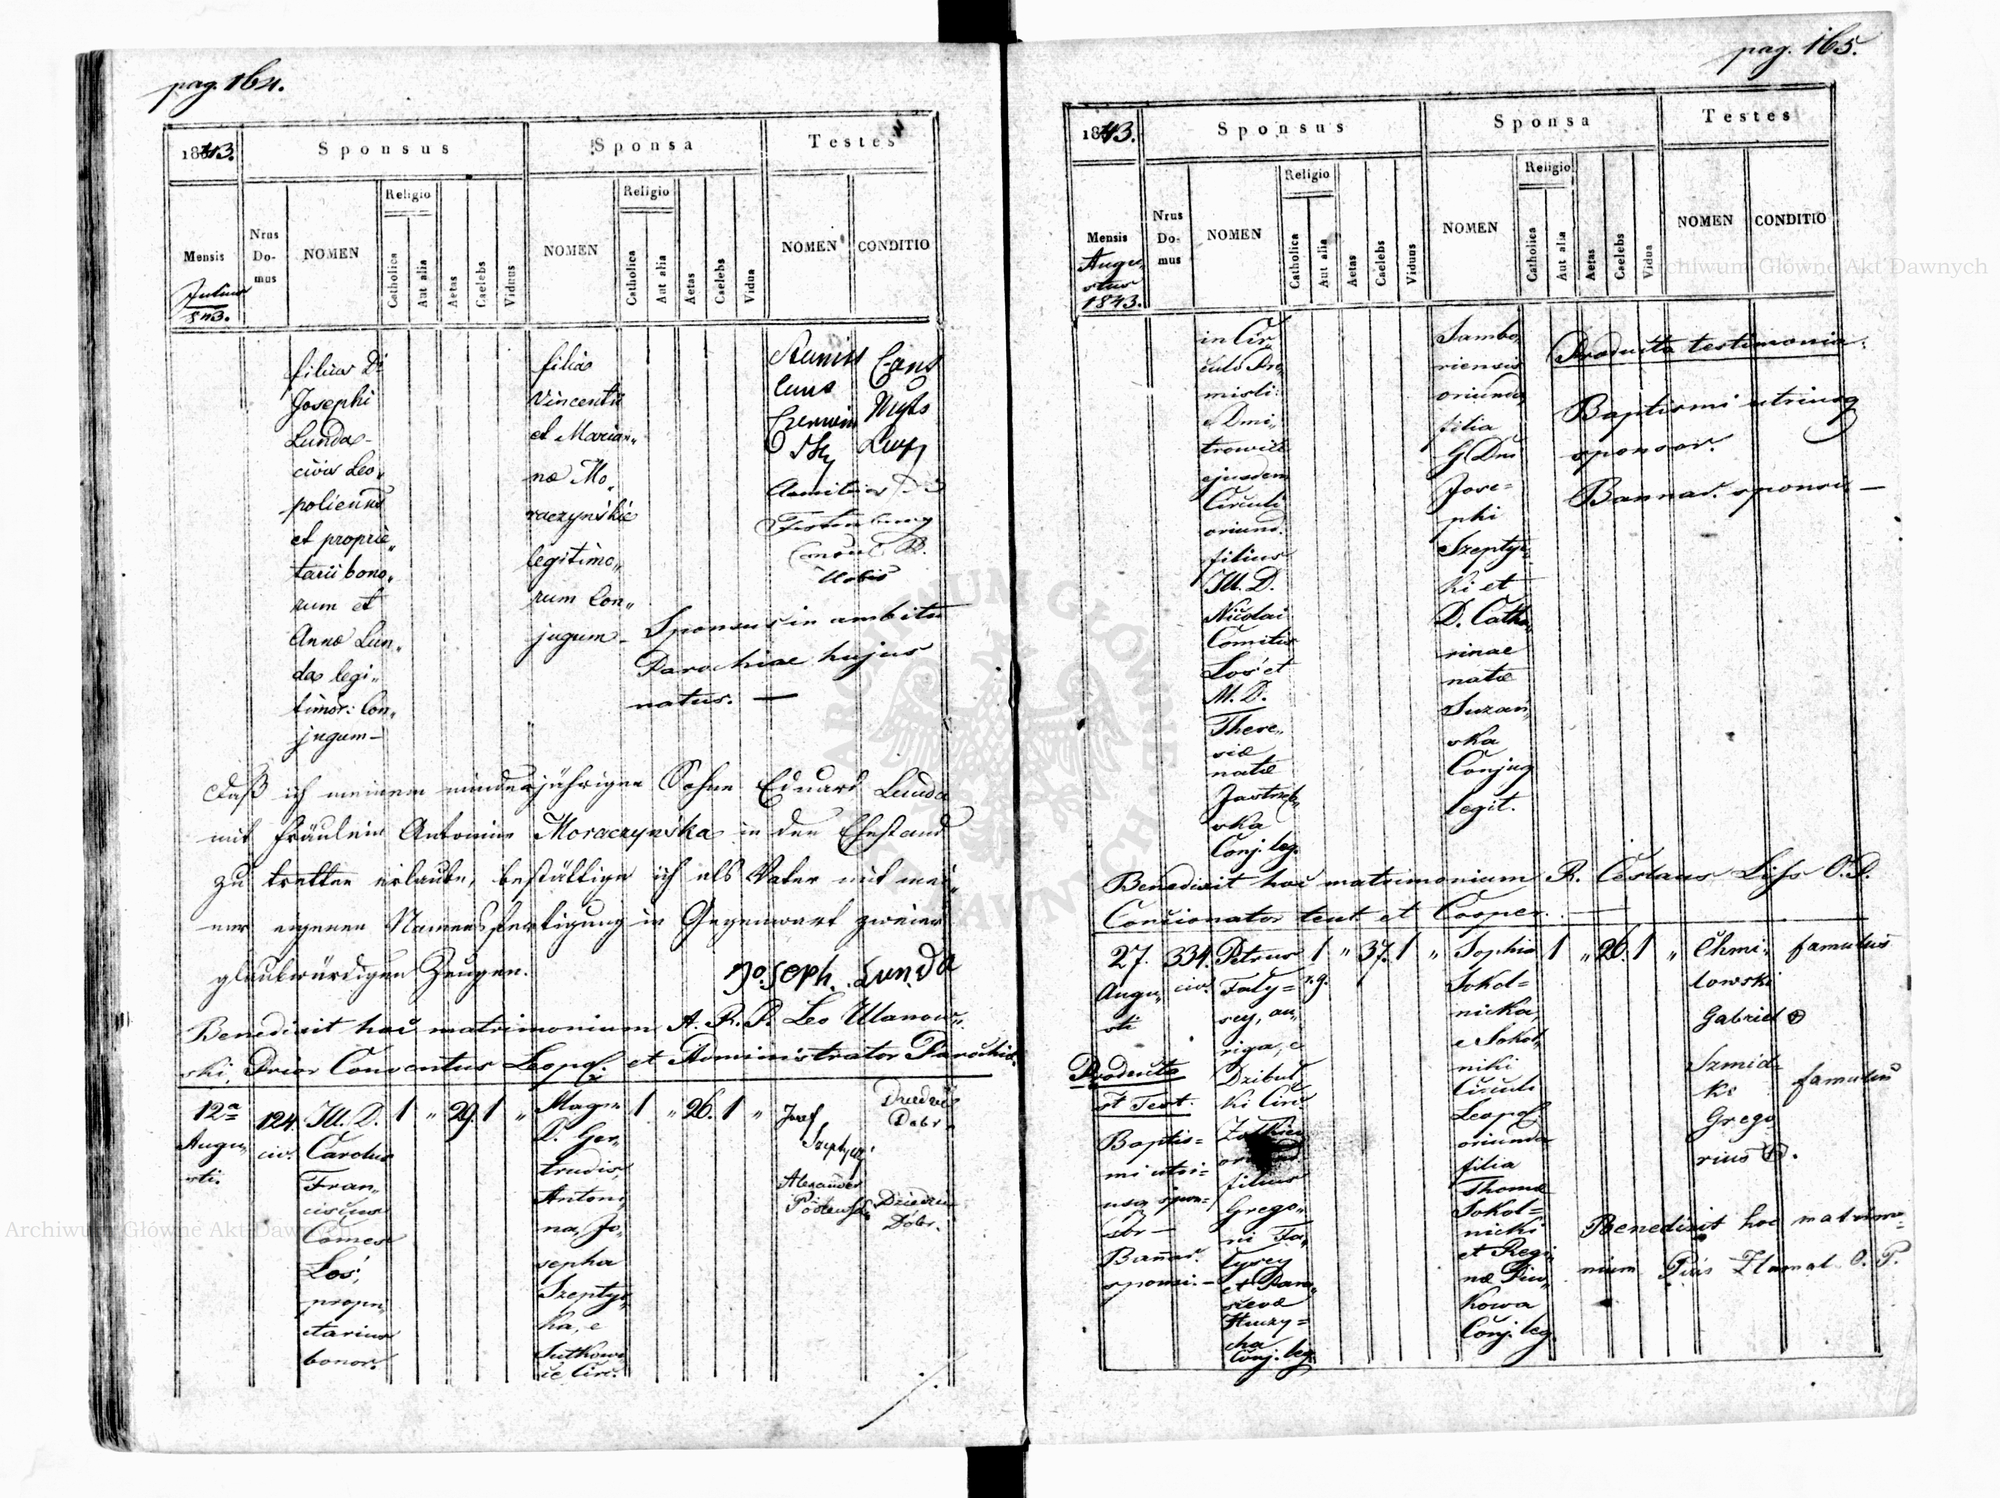 pag. 164.
1843.
Sponsus
Sponsa
Testes
Mensis
Julius
843.
Nrus
Do-
mus
NOMEN
Religio
Catholica
Aut alia
Aetas
Caelebs
Viduus
NOMEN
Religio
Catholica
Aut alia
Aetas
Caelebs
Vidua
NOMEN
CONDITIO
filius Di
Josephi
Lunda
civis Leo„
poliensis
et proprie„
tarii bono„
rum et
Anna Lun„
da legi„
timor: Con„
jugum–
filia
Vincentii
et Marian„
næ Mo„
raczynskie
legitimo„
rum Con„
jugum–
Sponsus in ambitu
Parochiae hujus
natus. —
Daß ich meinem minderjährigen Sohne Eduard Lunda
mit Fräulein Antonine Moraczyńska in den Ehestand
zu tretten erlaube, bestättige ich als Vater mit mei„
ner eigenen Namensfertigung in Gegenwart zweier
glaubwürdigen Zeugen.
Joseph Lunda
Benedixit hoc matrimonium A. R. P. Leo Ulanow„
ski, Prior Conventus Leopol. et Administrator Parochiæ.
12a
Augu„
sti.
124.
civ.
Ill. D.
Carolus
Fran„
ciscus
Comes
Łoś,
propri„
etarius
bonor.
1 „ 29. 1 „
Magn.
D. Ger„
trudis,
Antoni„
na, Jo„
sepha
Szepty„
ka, e
Sutkowi„
ce Circ.
1 „ 26. 1 „
Josef
Szeptycki
Alexander
Dziedzic
Dóbr.
Dziedzic
Dóbr.
pag. 165.
1843.
Sponsus
Sponsa
Testes
Mensis
Augu„
stus
1843.
Nrus
Do-
mus
NOMEN
Religio
Catholica
Aut alia
Aetas
Caelebs
Viduus
NOMEN
Religio
Catholica
Aut alia
Aetas
Caelebs
Vidua
NOMEN
CONDITIO
in Cir„
culo Pre„
misli:
e Dmi„
trowice
ejusdem
Circuli
oriund.
filius
Ill. D.
Nicolai
Comitis
Łoś et
M. D.
There„
siæ
natæ
Jastrzęb„
ska
Conj. leg.
Sambo„
riensis
oriunda,
filia
G Dni
Jose=
phi
Szepty„
ki et
D. Catha„
rinae
natæ
Suzań„
ska
Conjug
legit.
Producta testimonia:
Baptismi utriusq
sponsor.
Bannor. sponsi —
Benedixit hoc matrimonium R. Ceslaus Liss O.P.
Concionator teut et Cooper. —
27.
Augu„
sti
334.
civ.
Petrus
Faly=
sey, au„
riga, e
Dzibuł„
ki Circ.
Zołkiew
filius
Grego„
rii Fa„
lysey
et Para„
scevæ
Huzy=
cha
Conj. leg.
1
r.g.
„ 37. 1 „
Sophia
Sokol=
nicka,
e Sokol„
niki
Circuli
Leopol.
oriunda
filia
Thomæ
Sokol=
nicki
et Regi„
næ Piw„
kowa
Conj. leg.
1 „ 26. 1 „
Chmi„
lowski
Gabriel
famulus
Szmid„
ke
Grego
rius
famulus
Producta
st Test.
Baptis=
mi utri=
usq spon=
sor —
Bannor.
sponsi. —
Benedixit hoc matrimo„
nium Pius Zlamal O. P.
ARCHIWUM GŁÓWNE AKT DAWNYCH
Archiwum Główne Akt Dawnych
Archiwum Główne Akt Dawnych